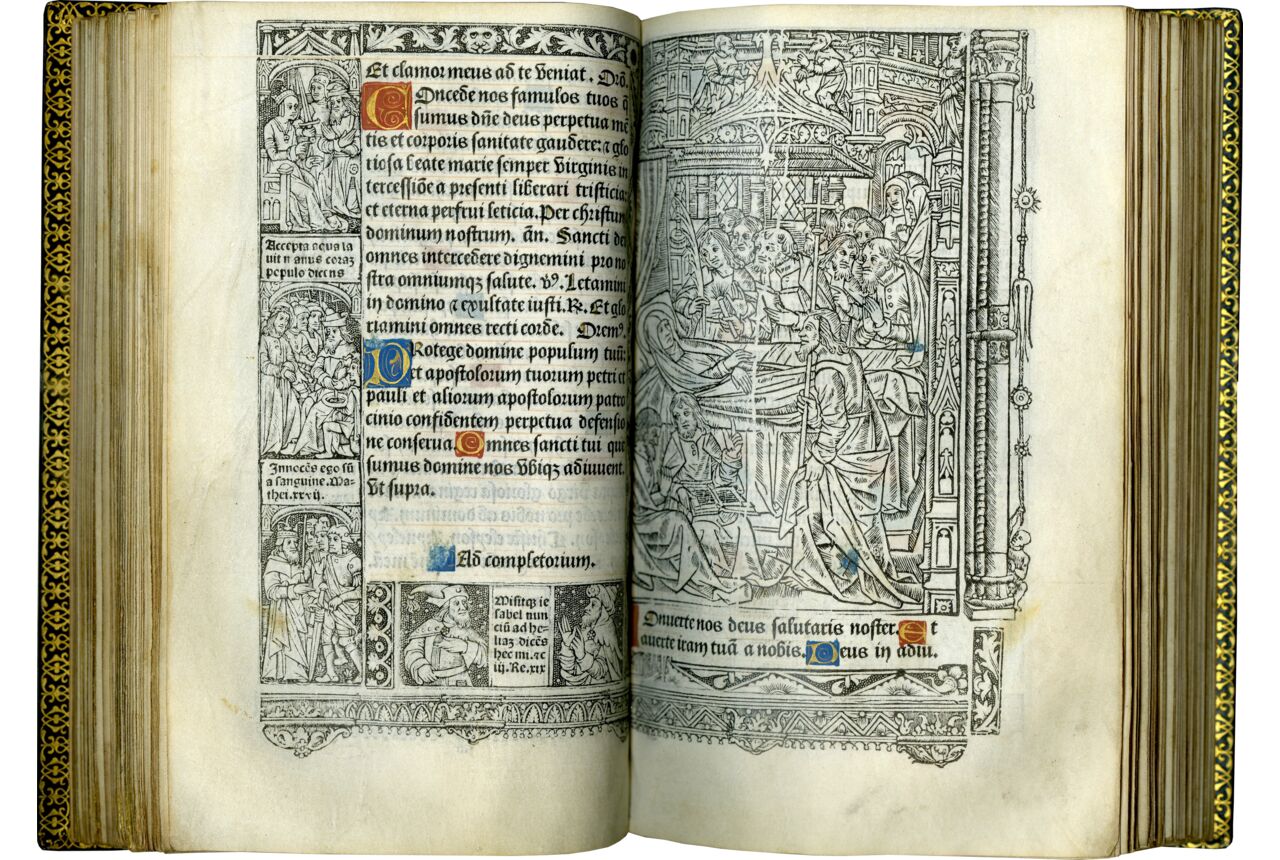 Et clamor meus ad te veniat. Orō.
COncede nos famulos tuos q̄
sumus dn̄e deus perpetua mē
tis et corporis sanitate gaudere: ⁊ glo
riosa beate marie semper virginis in
tercessiōe a presenti liberari tristicia:
et eterna perfrui leticia. Per christum
dominum nostrum. an̄. Sancti dei
omnes intercedere dignemini pro no
stra omniumqꝫ salute. v̾. Letamini
in domino ⁊ exultate iusti. R. Et glo
riamini omnes recti corde. Oremꝰ.
PRotege domine populum tuū:
et apostolorum tuorum petri et
pauli et aliorum apostolorum patro
cinio confidentem perpetua defensio
ne conserua. Omnes sancti tui que
sumus domine nos vbiqꝫ adiuuent.
Vt supra.
Ad completorium.
Accepta aqua la
uit manus coraꝫ
populo dicens
Innocēs ego sū
a sanguine. Ma-
thei. xxvij.
Misitqꝫ ie
sabel nun
ciū ad he-
liaꝫ dicēs
hec mi. ⁊c
iij. Re. xix
Onuerte nos deus salutaris noster. Et
auerte iram tuā a nobis. Deus in adiu.